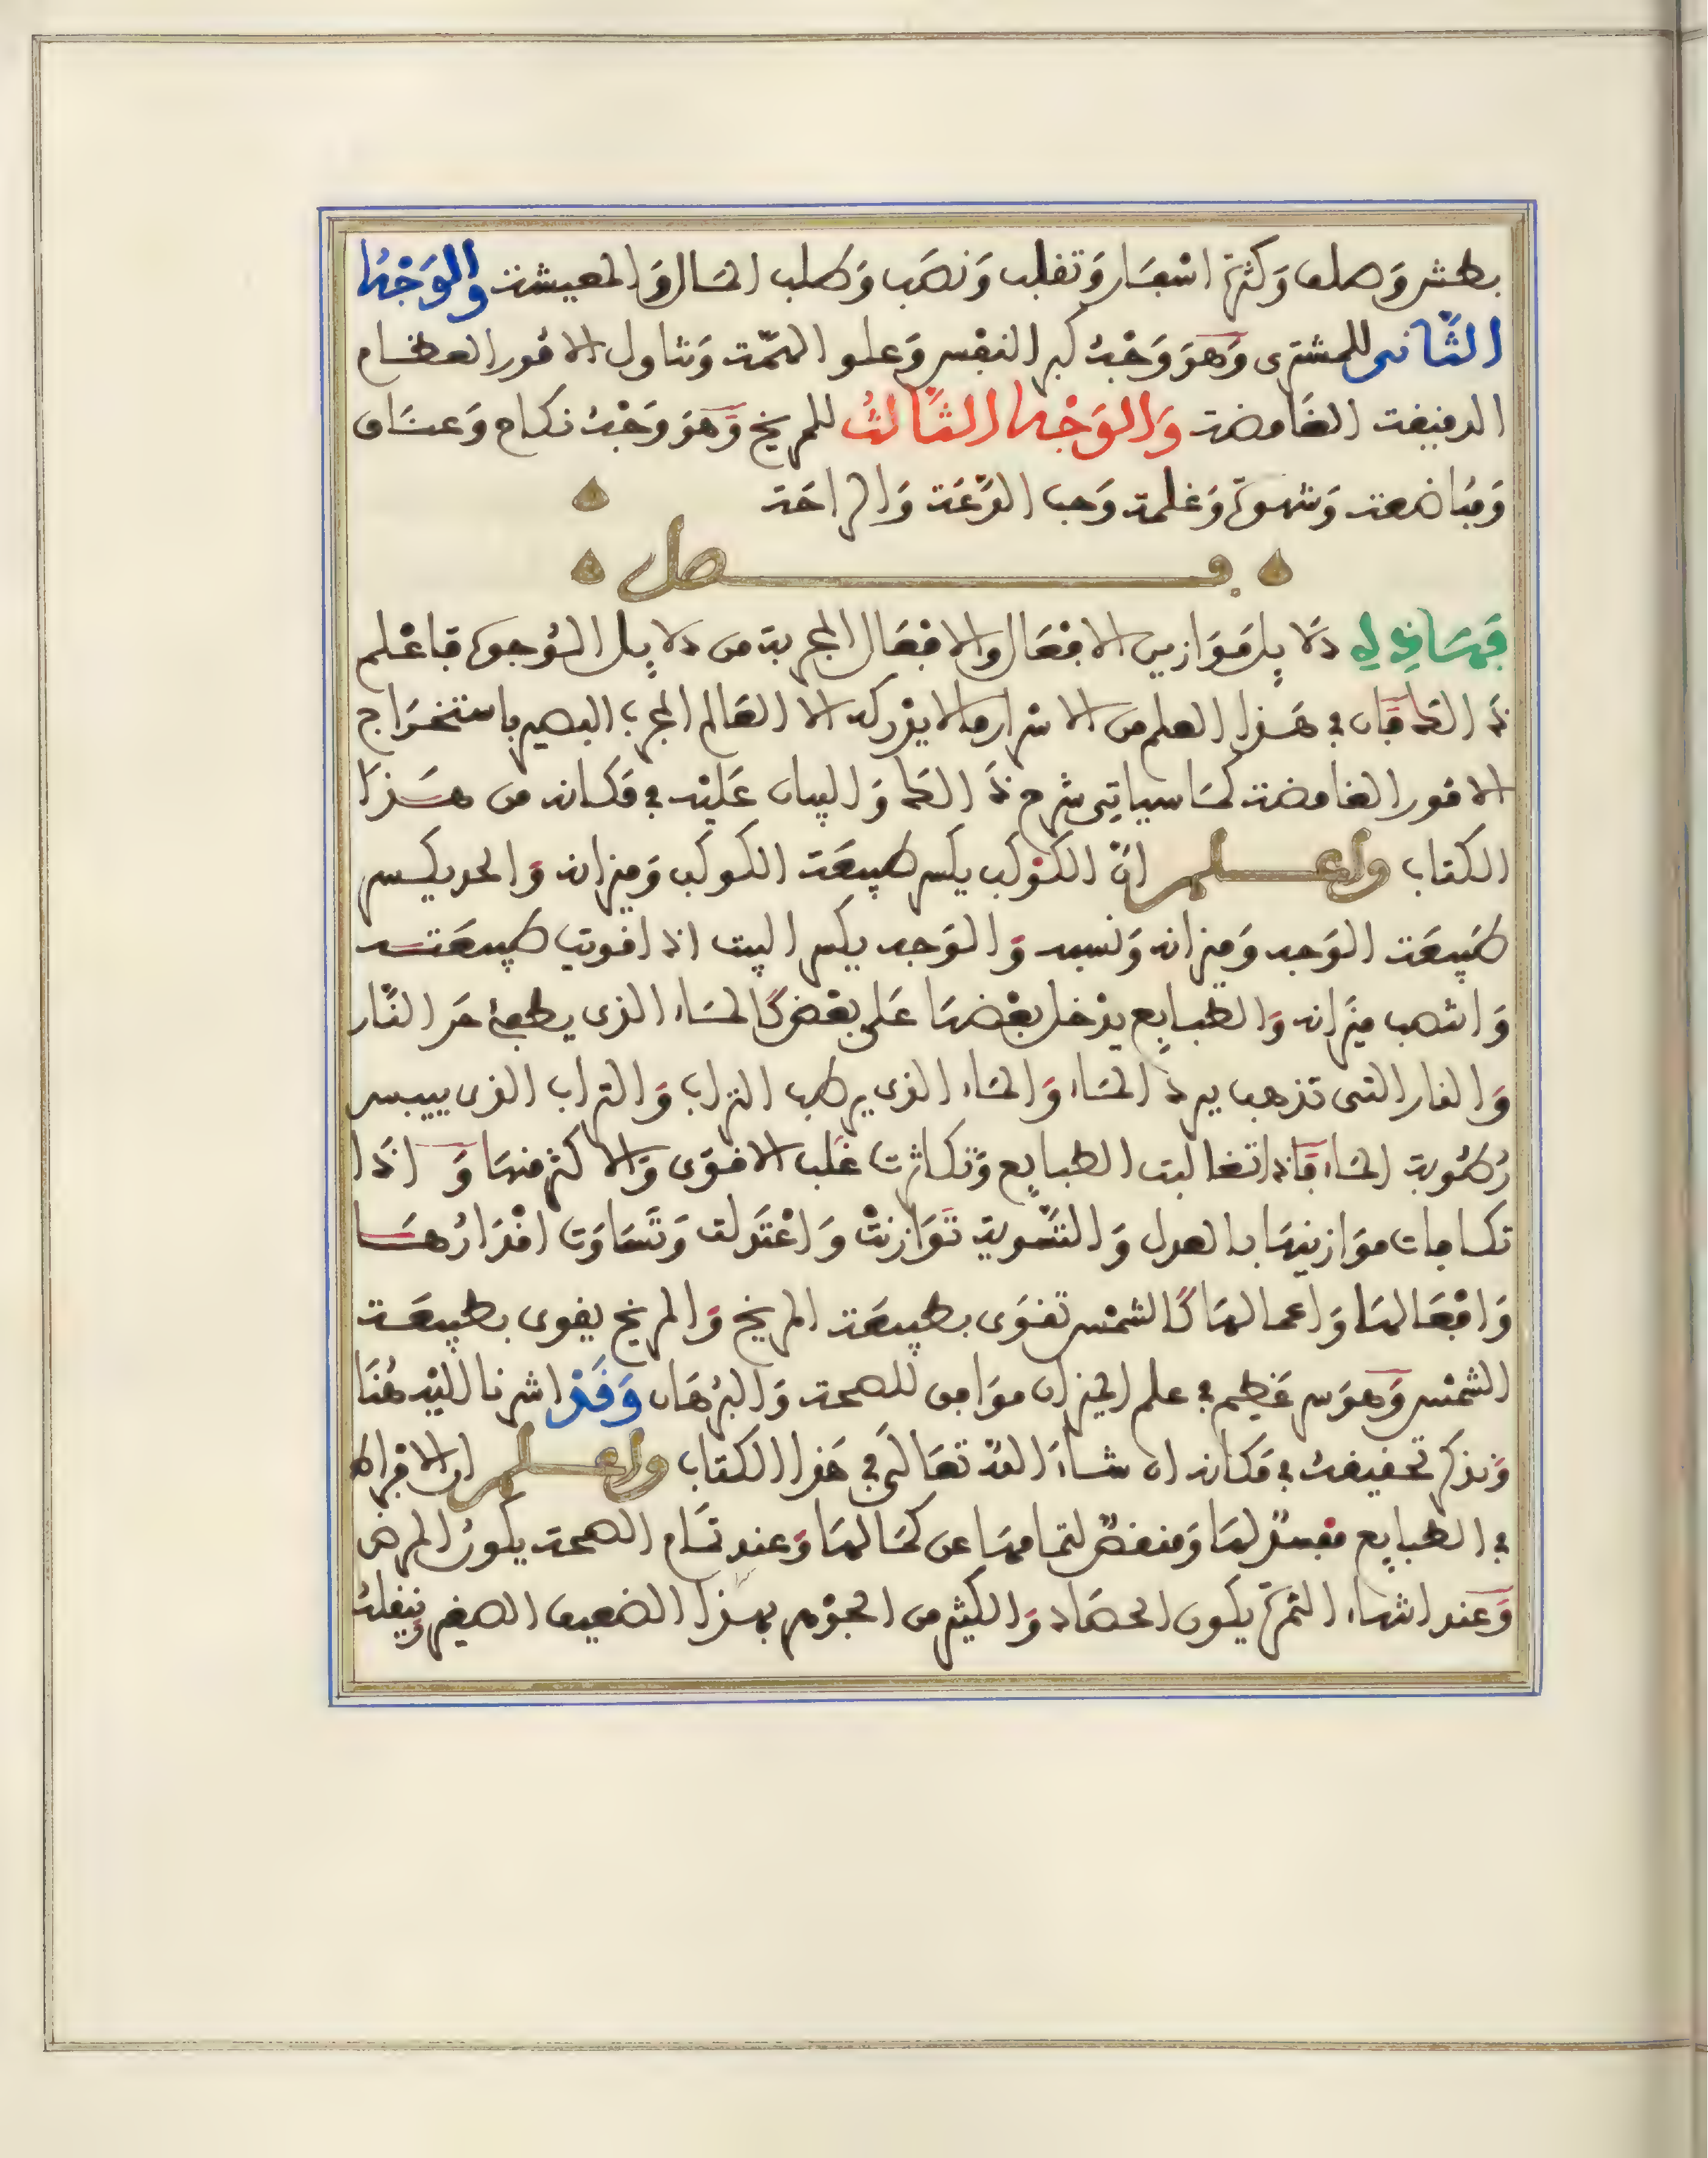 بطش وصلف وكثرة اسفار وتقلب ونصب وطلب المال والمعيشة والوجه
الثاني للمشتري وهو وجه كبر النفس وعلو الهمة وتناول الامور العظام
الدقيقة الغامضة والوجه الثالث للمريخ وهو وجه نكاح وعناق
ومباضعة وشهوة وغلمة وحب الدعة والراحة
فصل
دلايل موازين الافعال والافعال المجربة من دلايل الوجوه فاعلم
ذالك فان في هذا العلم من الاسرار ما لا يدركه الا العالم المجرب البصير باستخراج
الامور الغامضة كما سياتي شرح ذالك والبيان عليه في مكانه من هذا
الكتاب واعلم ان الكوكب يكسر طبيعة الكوكب وميزانه والحد يكسر
طبيعة الوجه وميزانه ونسبه والوجه يكسر البيت اذا قويت طبيعته
وانتصب ميزانه والطبايع يدخل بعضها على بعض كالماء الذي يطفئ حر النار
والنار التي تذهب برد الماء والماء الذي يرطب التراب والتراب الذي ييبس
رطوبة الماء فاذا تغالبت الطبايع وتكاثرت غلب الاقوى والاكثر منها واذا
تكافات موازينها بالعدل والتسوية توازنت واعتدلت وتساوت اقدارها
وافعالها واعمالها كالشمس تقوى بطبيعة المريخ والمريخ يقوى بطبيعة
الشمس وهو سر عظيم في علم الميزان موافق للصحة والبرهان وقد اشرنا اليه هنا
ونذكر تحقيقه في مكانه ان شاء الله تعالى في هذا الكتاب واعلم ان الافراط
في الطبايع مفسد لها ومنقص لتمامها عن كمالها وعند تمام الصحة يكون المرض
وعند انتهاء الثمرة يكون الحصاد والكثير من الجوهر بهذا الضعيف الصغير ينقلب